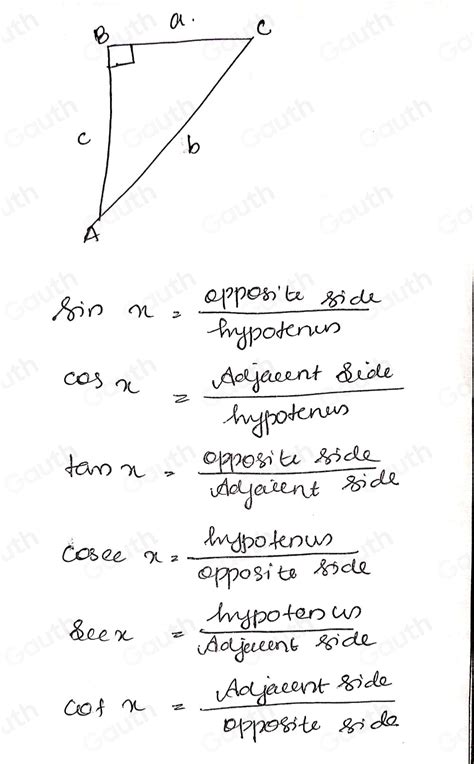 a.
B
C
c
b
A
sin x = opposite side / hypotenus
cos x = Adjacent side / hypotenus
tan x = opposite side / Adjacent side
cosec x = hypotenus / opposite side
sec x = hypotenus / Adjacent side
cot x = Adjacent side / opposite side
Gauth